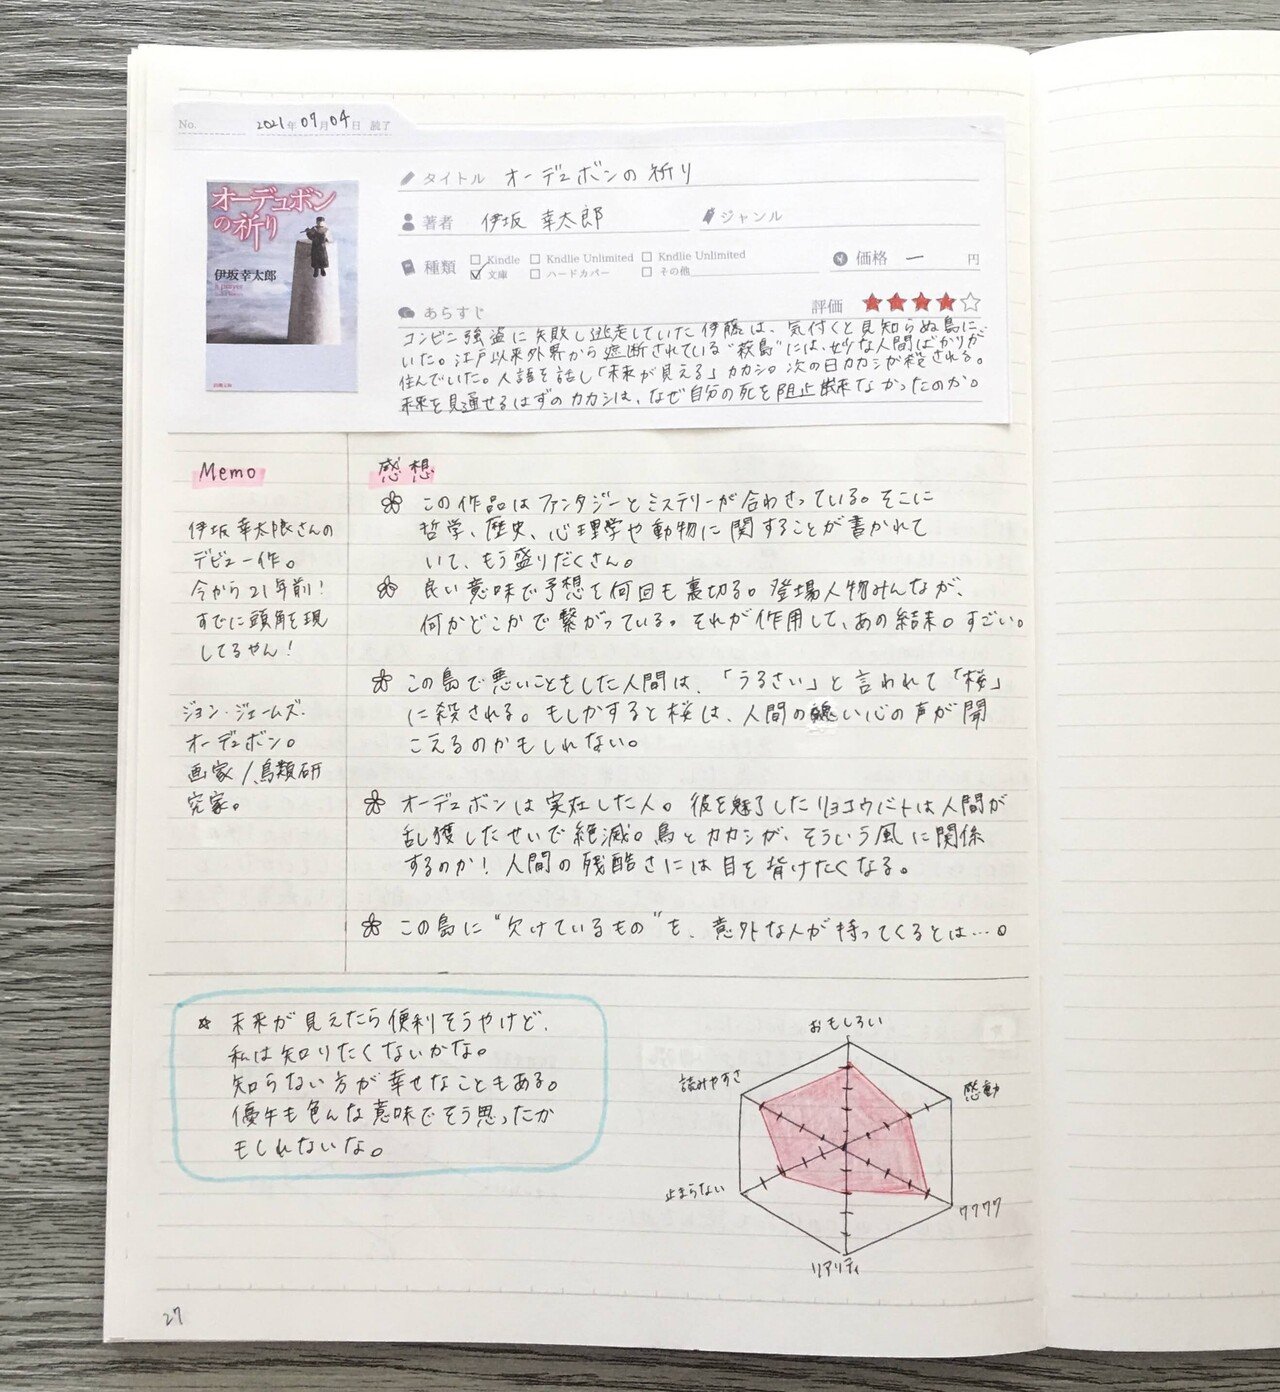 No. 2021年07月04日 読了
オーデュボン
の祈り
伊坂幸太郎
a prayer
新潮文庫
タイトル オーデュボンの祈り
著者 伊坂 幸太郎 ジャンル
種類 Kindle Kndlie Unlimited Kndlie Unlimited
文庫 ハードカバー その他
価格 ー 円
評価 ★★★★☆
あらすじ
コンビニ強盗に失敗し逃走していた伊藤は、気付くと見知らぬ島に
いた。江戸以来外界から遮断されている"萩島"には、妙な人間ばかりが
住んでいた。人語を話し「未来が見える」カカシ。次の日カカシが殺される。
未来を見通せるはずのカカシは、なぜ自分の死を阻止出来なかったのか。
Memo
伊坂幸太郎さんの
デビュー作。
今から21年前!
すでに頭角を現
してるやん!
ジョン・ジェームズ・
オーデュボン。
画家/鳥類研
究家。
感想
この作品はファンタジーとミステリーが合わさっている。そこに
哲学、歴史、心理学や動物に関することが書かれて
いて、もう盛りだくさん。
良い意味で予想を何回も裏切る。登場人物みんなが、
何かどこかで繋がっている。それが作用して、あの結末。すごい。
この島で悪いことをした人間は、「うるさい」と言われて「桜」
に殺される。もしかすると桜は、人間の醜い心の声が聞
こえるのかもしれない。
オーデュボンは実在した人。彼を魅了したリョコウバトは人間が
乱獲したせいで絶滅。鳥とカカシが、そういう風に関係
するのか!人間の残酷さには目を背けたくなる。
この島に"欠けているもの"を、意外な人が持ってくるとは…。
☆ 未来が見えたら便利そうやけど、
私は知りたくないかな。
知らない方が幸せなこともある。
優午も色んな意味でそう思ったか
もしれないな。
おもしろい
感動
ワクワク
リアリティ
止まらない
読みやすさ
27